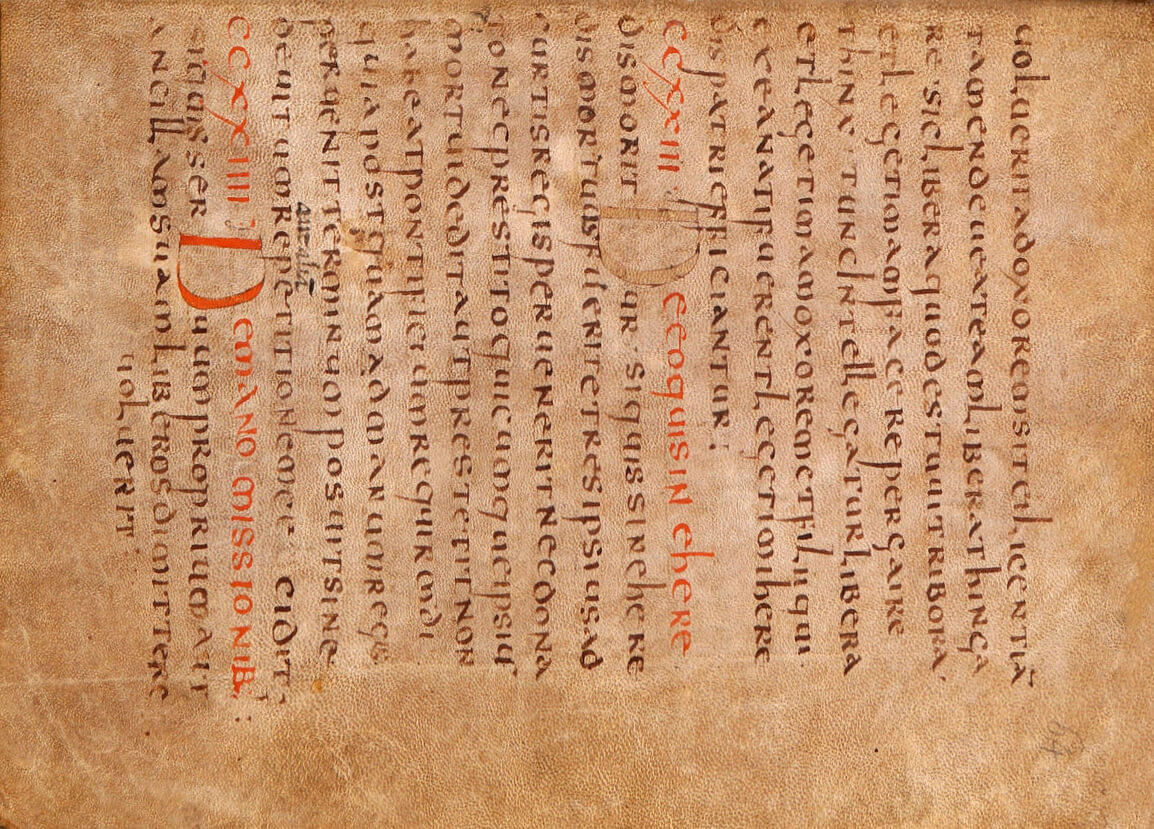 uoluerit ad oxorem sit ei licentiā
tamen deueat eam libera thinga
re · sic libera quod est uuitribora ·
et legetimam facere per gaire
thinx · tunc intellegatur libera
et legetimam oxorem et filii qui ·
ex ea nati fuerent legetimi here
dis patri efficiantur :
CCXXIII · De eo qui sin ehere
dis moritur · si quis sin ehere
dis mortuus fuerit et res ipsius ad
curtis regis peruenerit nec dona
to nec prestito quicumque ipsius
mortui dedit aut prestetit non
habeat pontificium requirendi
quia postquam ad manum regis
peruenit terminum posuit sine
aut aliā
deuitum repetitionem ce cidit ·
CCXXIIII · De manomissionib; :
si quis seruum proprium aut
ancillam suam liberos dimittere
uoluerit ·
64